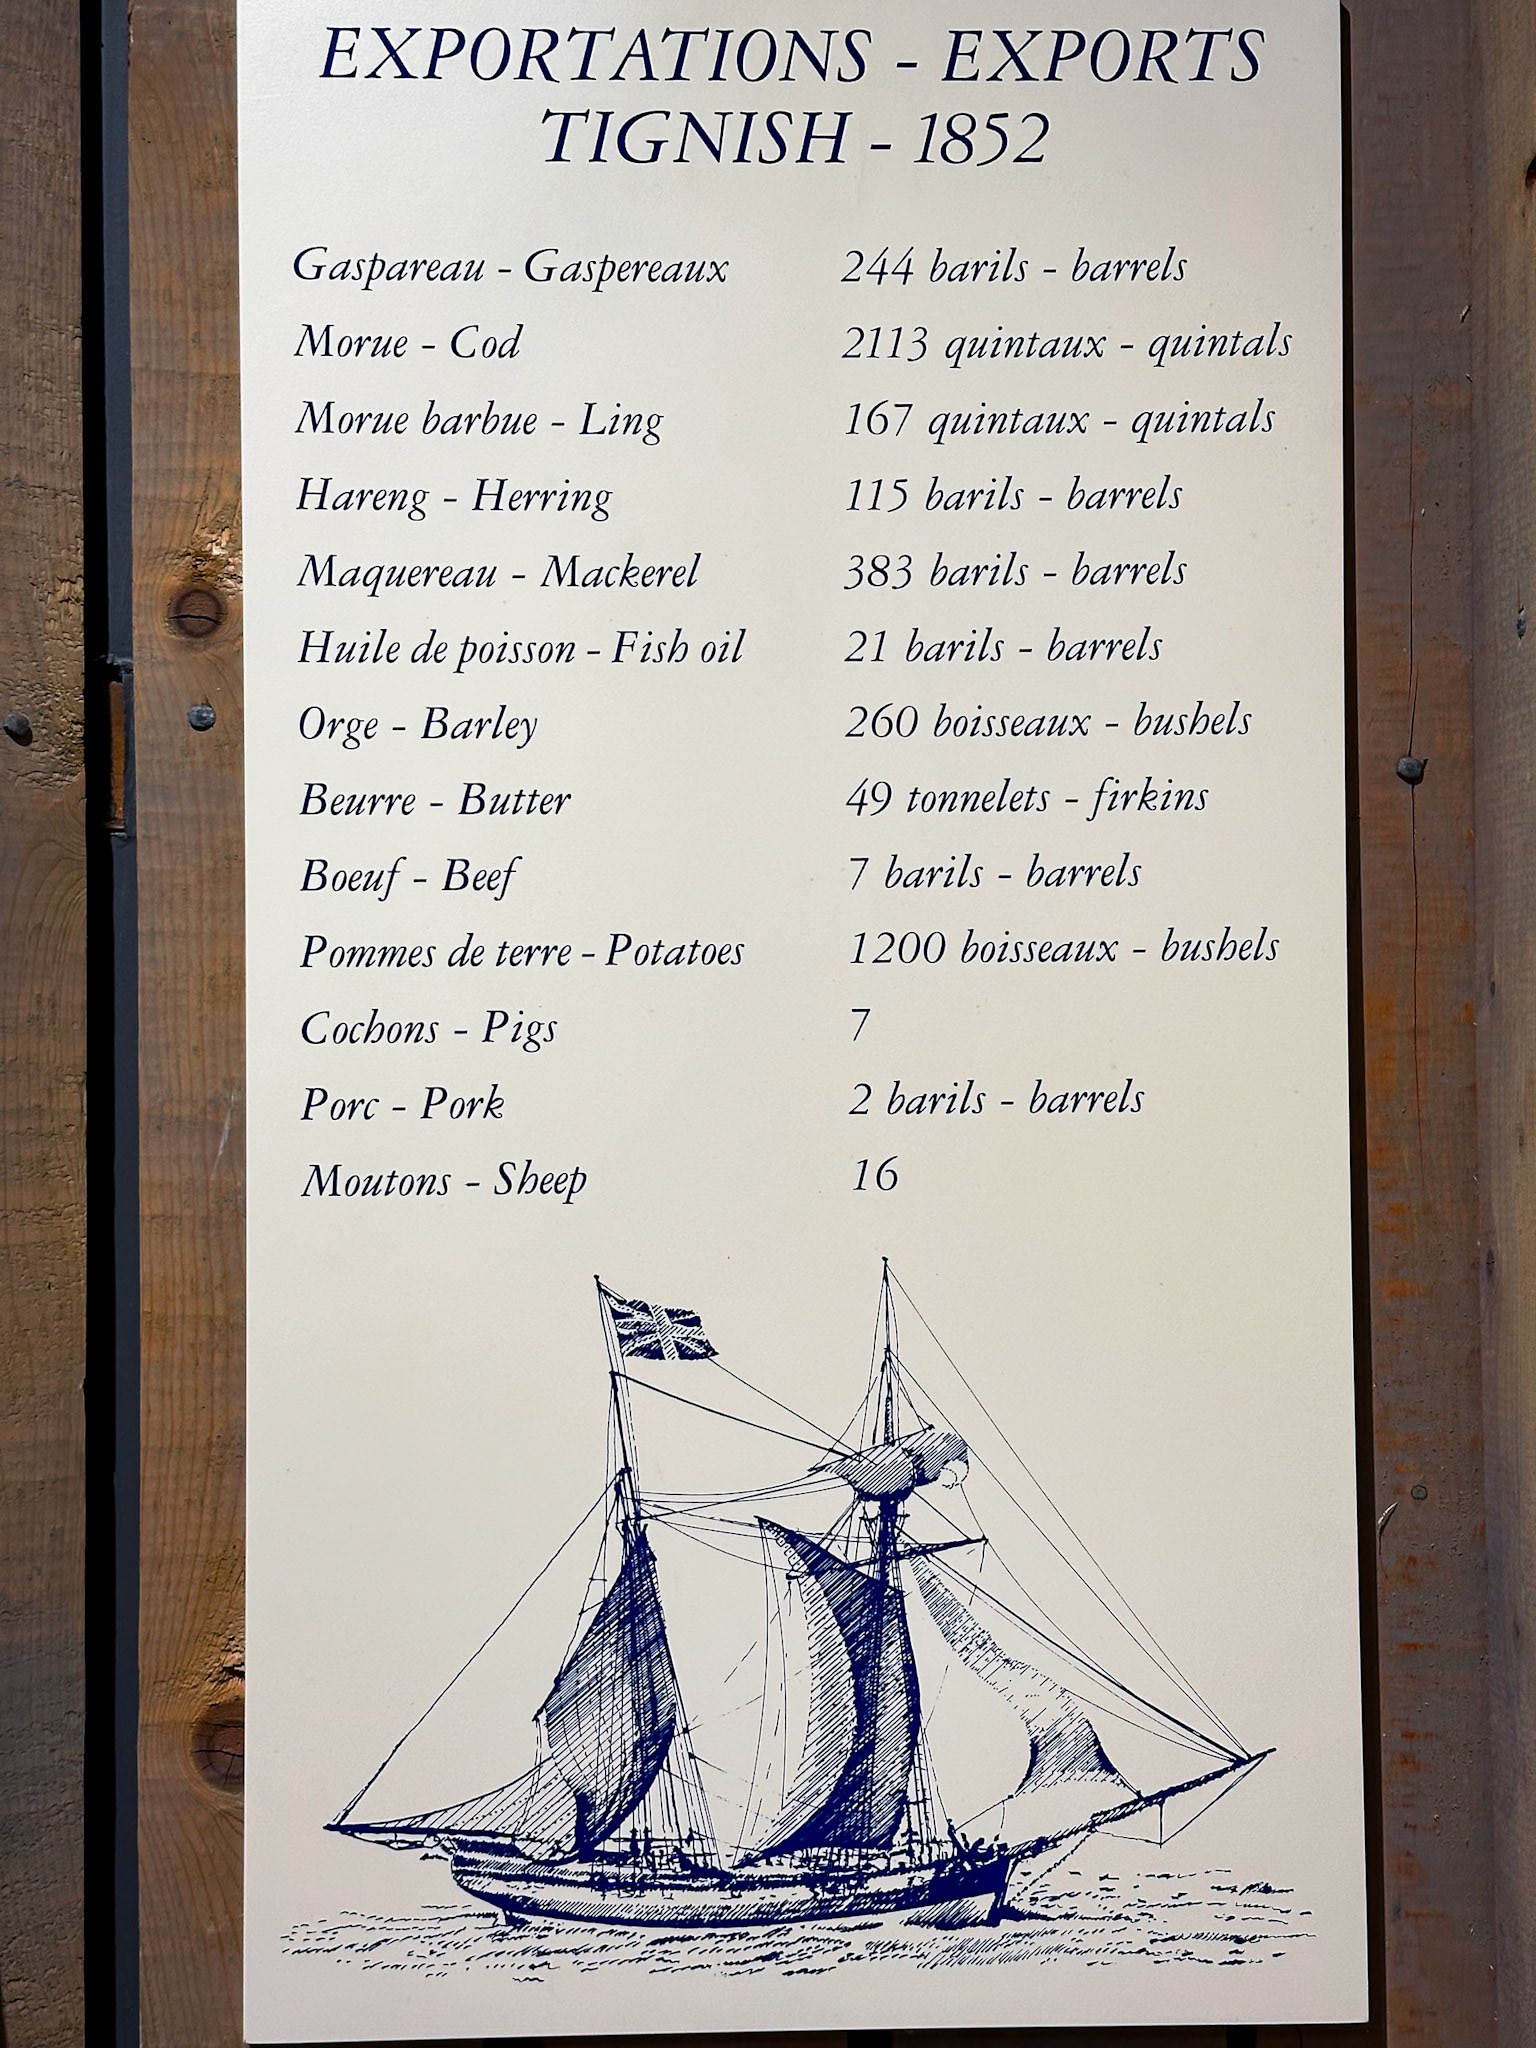 EXPORTATIONS - EXPORTS
TIGNISH - 1852
Gaspareau - Gaspereaux 244 barils - barrels
Morue - Cod 2113 quintaux - quintals
Morue barbue - Ling 167 quintaux - quintals
Hareng - Herring 115 barils - barrels
Maquereau - Mackerel 383 barils - barrels
Huile de poisson - Fish oil 21 barils - barrels
Orge - Barley 260 boisseaux - bushels
Beurre - Butter 49 tonnelets - firkins
Boeuf - Beef 7 barils - barrels
Pommes de terre - Potatoes 1200 boisseaux - bushels
Cochons - Pigs 7
Porc - Pork 2 barils - barrels
Moutons - Sheep 16